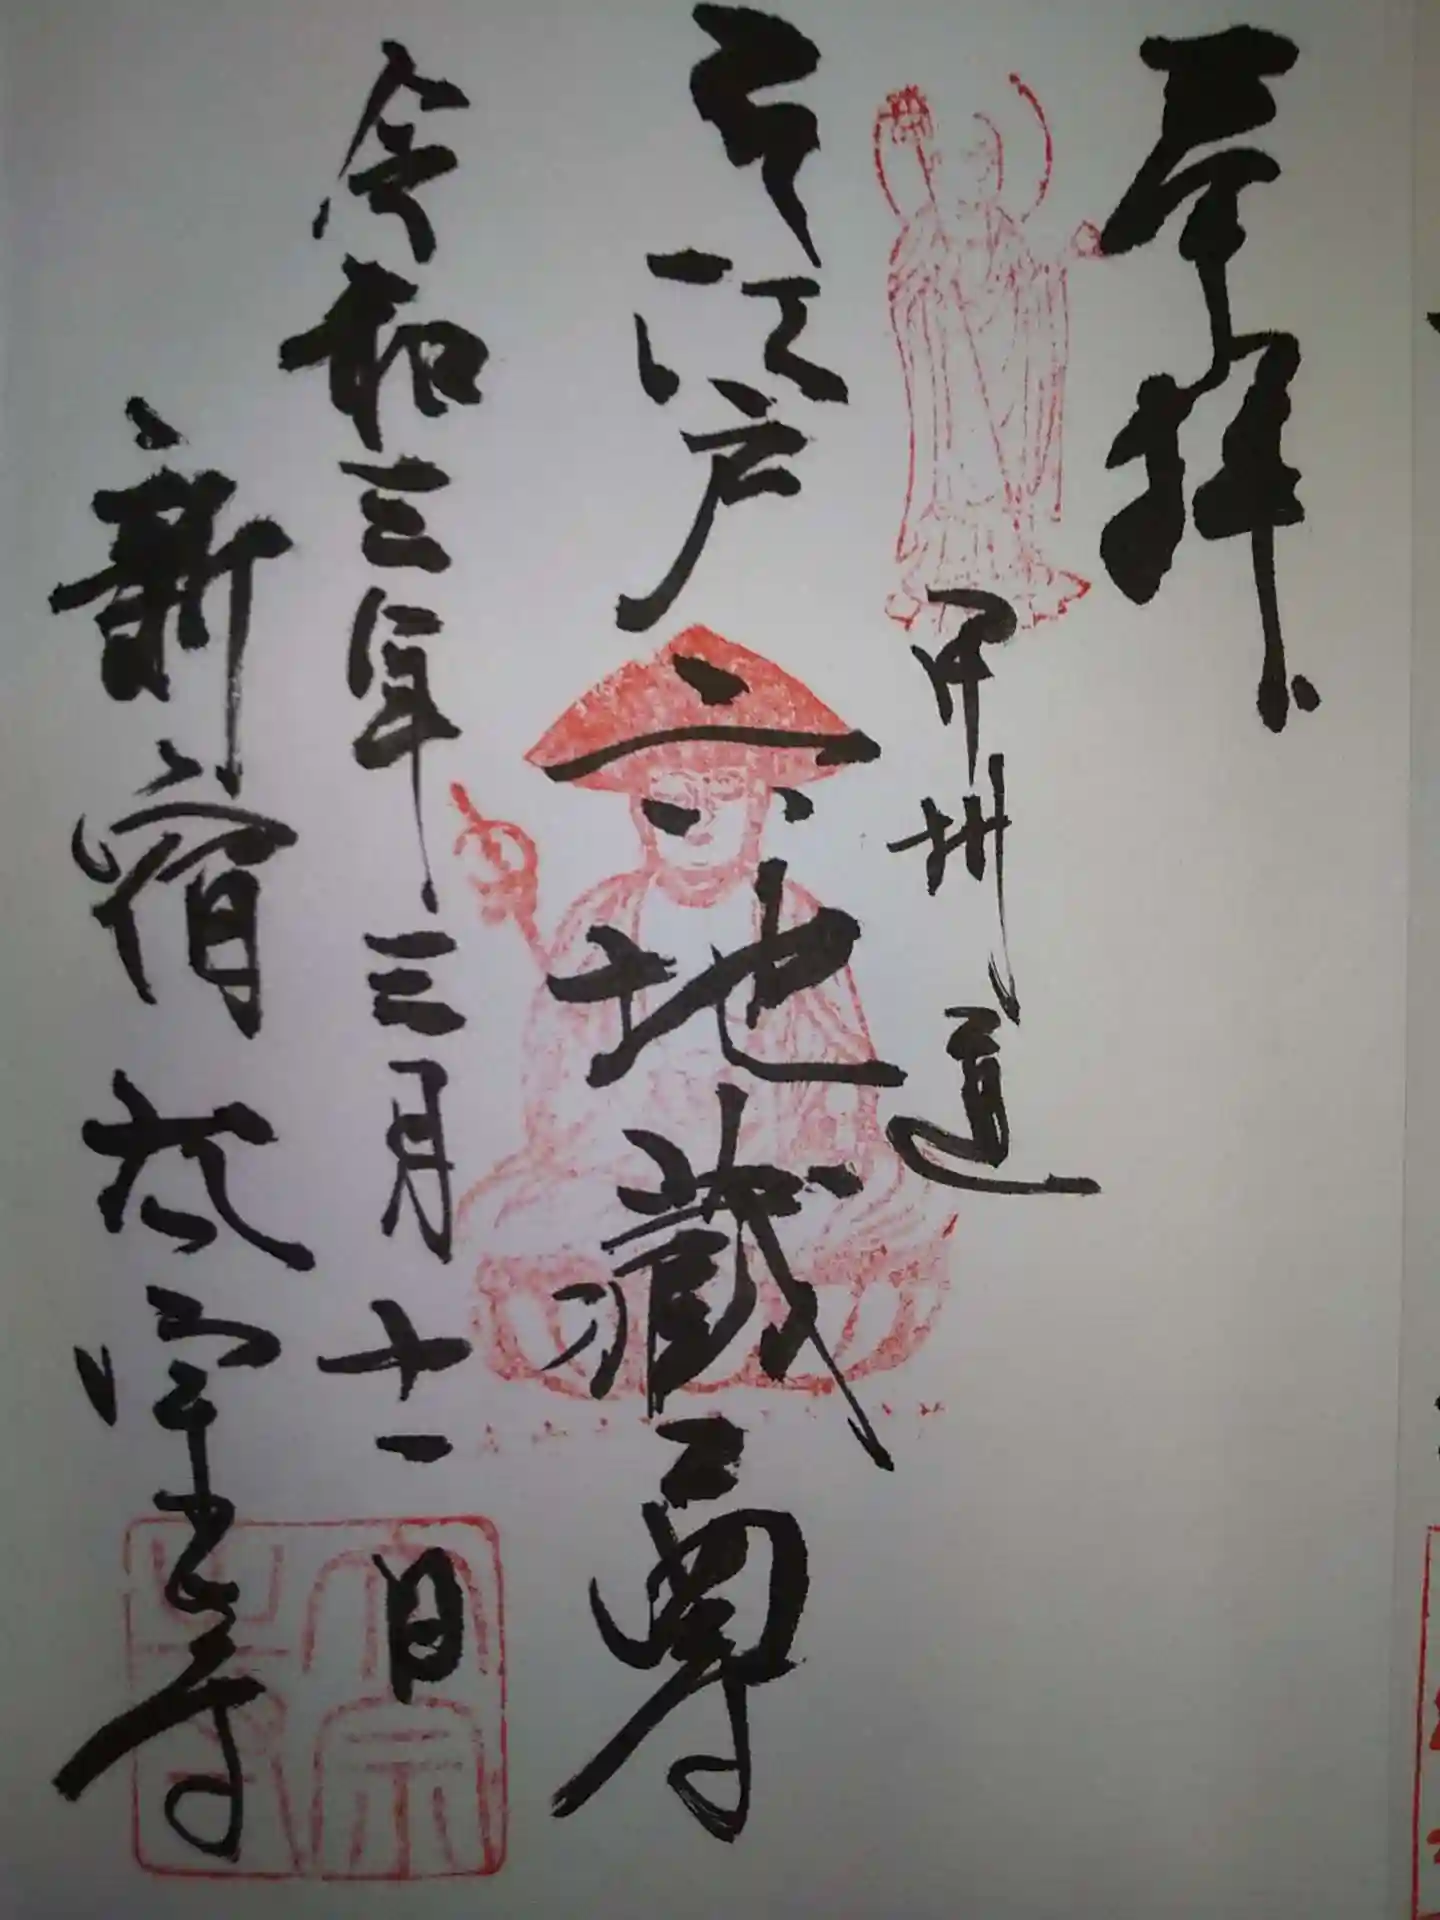 奉拝
甲州道
江戸六地蔵尊
令和三年三月十一日
新宿
寺
太宗寺印